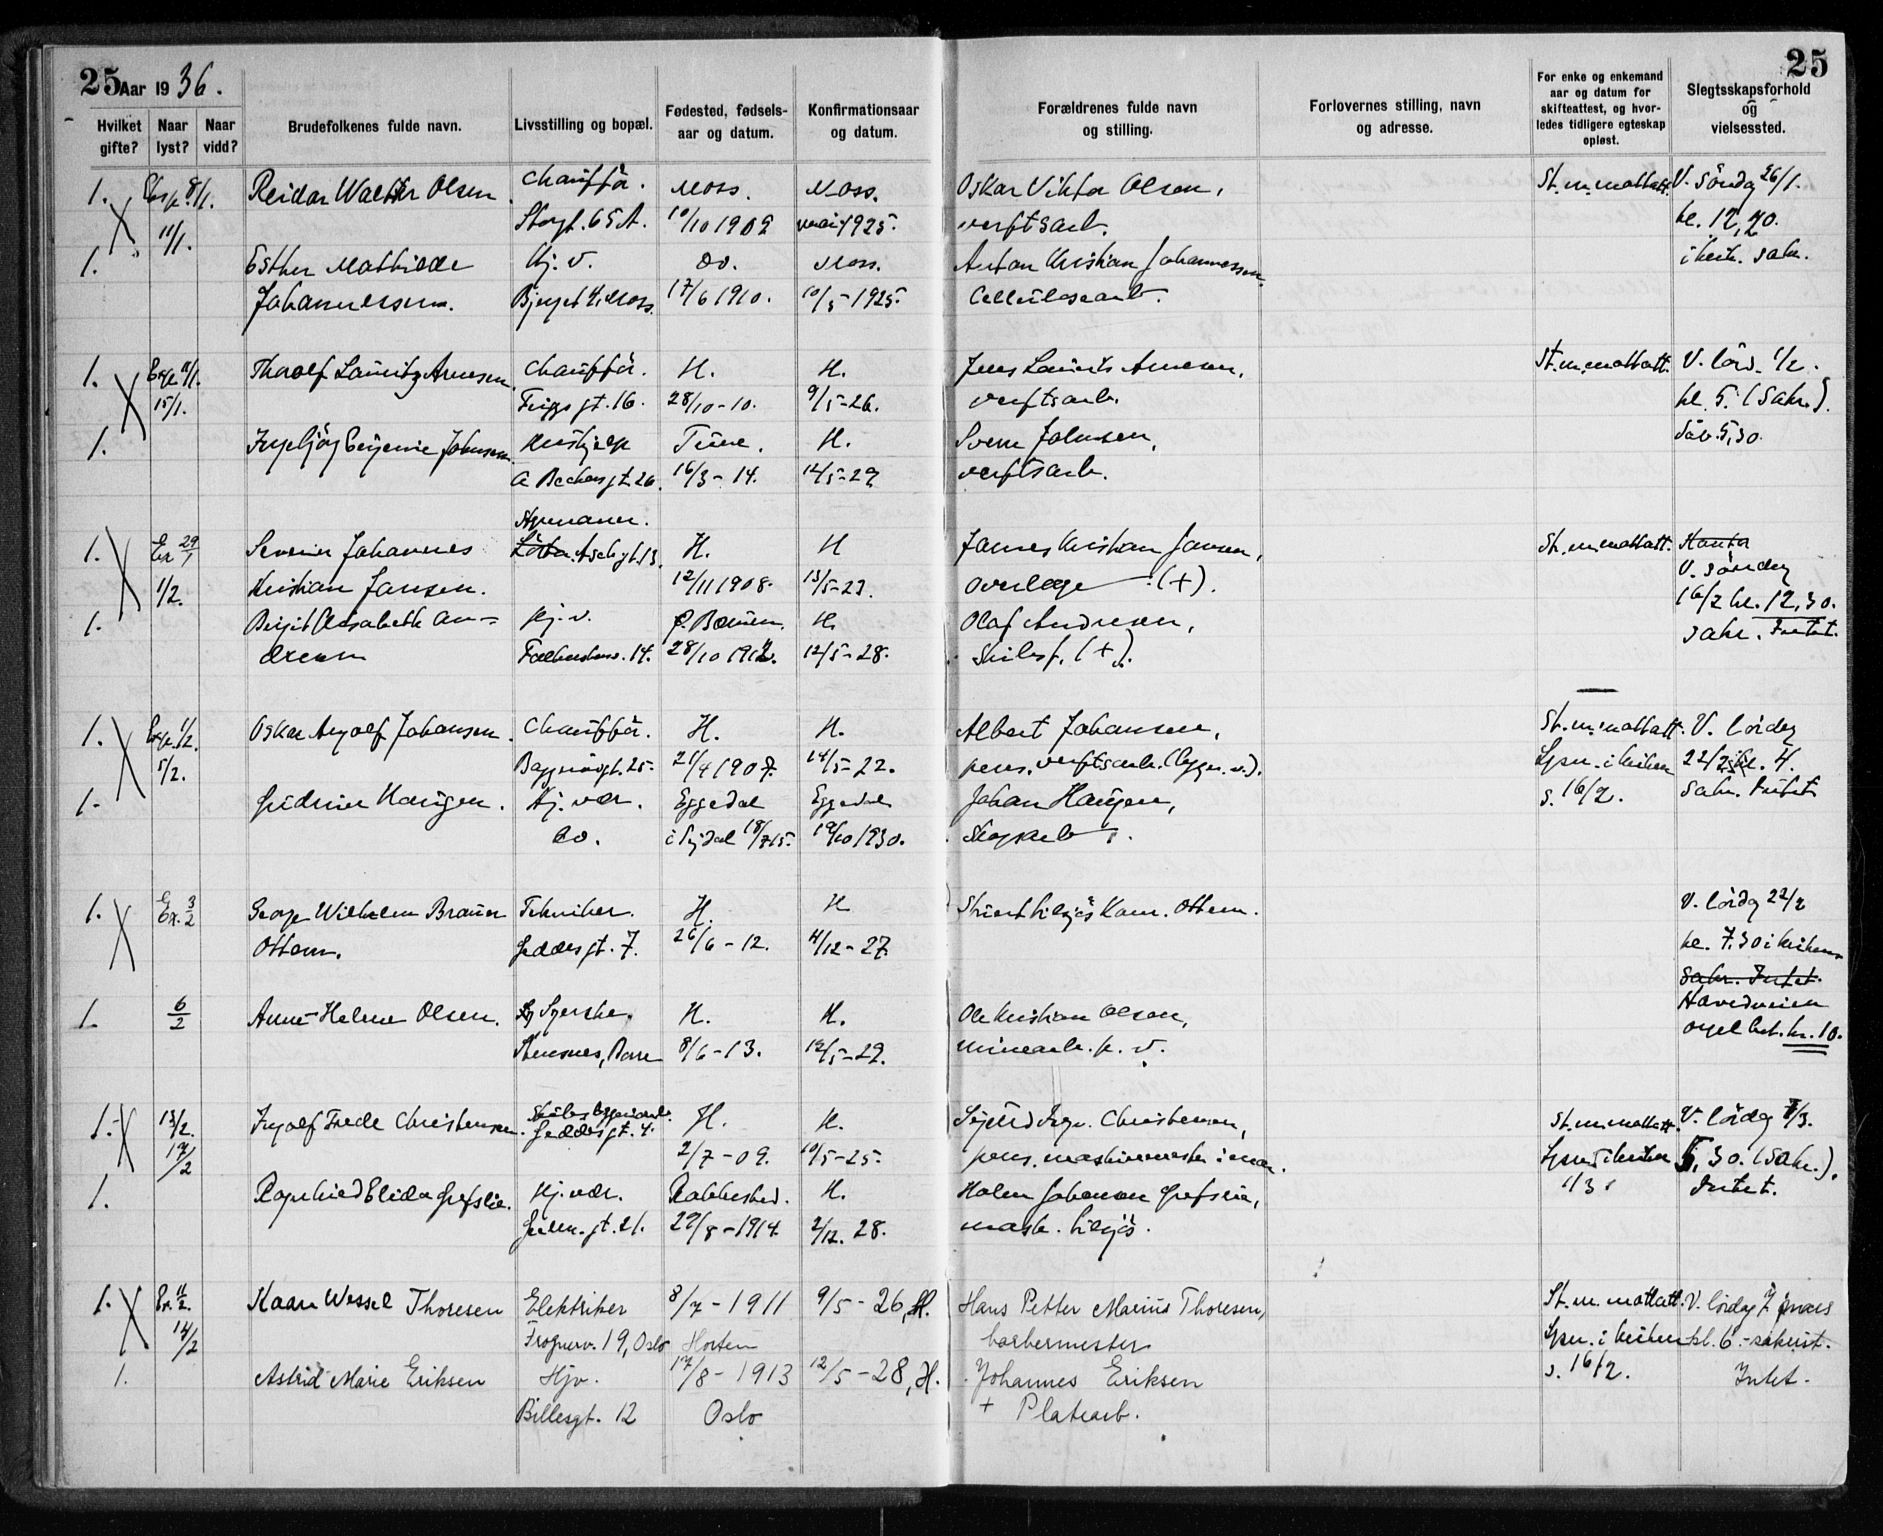 25 Aar 1936. 25
Hvilket gifte? Naar lyst? Naar vidd? Brudefolkenes fulde navn. Livsstilling og bopæl. Fødested, fødsels-aar og datum. Konfirmationsaar og datum. Forældrenes fulde navn og stilling. Forlovernes stilling, navn og adresse. For enke og enkemand aar og datum for skifteattest, og hvorledes tidligere egteskap opløst. Slegtsskapsforhold og vielsessted.
1. 8/1. Reidar Walther Olsen Chauffør. Moss. Moss. Oskar Viktor Olsen, St. m. mottatt. V. Søndag 26/1.
11/1. Storgt. 65 A. 10/10 1909 mai 1925. verftsarb. kl. 12,20.
1. Esther Mathilde Hj. v. do. Moss. Anton Kristian Johannessen i kirk. sakr.
Johannessen. Moss. 17/6 1910. 10/5-1925. Cellulosearb.
1. Exp. 11/1. Thorolf Lauritz Arnesen Chauffør. H. H. Jens Laurits Arnesen, St. m. mottatt. V. lörd. 1/2.
15/1. Friggs gt. 16. 28/10-10. 9/5-26. verftsarb. kl. 5. (Sakr.).
1. Ingebjørg Eugenie Johnsen. Hushjelp Tune. H. Svein Johnsen, 5,30.
A Bechersgt. 26. 16/3-14. 12/5-29 verftsarb.
1. Ex 29/1 Severin Johannes Aschgt. 13. H. H James Kristian Jansen, St. m. mottatt.
1/2. Kristian Jansen. 12/11 1908. 13/5-23. (+). V. søndag
16/2 kl. 12,30.
1. Birgit Elisabeth An- Hj. v. H. Olaf Andresen, Sakr. Intet.
dresen 14. 28/10 1912. 12/5-28. (+).
1. Exp. 1/2. Oskar Arnolf Johansen. Chauffør. H. H. Albert Johansen, St. m. mottatt. V. lördag
5/2. 25. 21/4 1907. 14/5-22. pens. verftsarb. Lysn. i kirken 22/2 kl. 4.
1. Gudrun Haugen. Hj. vær. Eggedal Eggedal Johan Haugen, s. 16/2. Sakr. Intet.
do. i Sigdal 18/7 15. 19/10 1930. Skogsarb.
1. Ex. 3/2 George Wilhelm Brauer Tekniker. H. H V. lördag 22/2
Ottem. Geddes gt. 7. 26/6-12. 4/12-27. kl. 7.30 i kirken
Sakr. Intet.
1. 6/2 Anne-Helene Olsen. Syerske. H. H. Ole Kristian Olsen,
8/6-13. 12/5-29. minearb. kr. 10.
1. 13/2. Ingolf Frede Christensen. Geddes gt. 4. H. H. Sigurd Ingv. Christensen, St. m. mottatt. V. lördag 7/3.
17/2 2/7-09. 10/5-25. pens. maskinmester i mar. Lysn. i kirken 5,30. (Sakr.).
1. Ragnhild Elida Grefslie. Hj. vær. H. Johansen Grefslie, 1/3 Intet.
21. 29/8-1914. 2/12. 28. mask.
1. Ex. 11/2. Kaare Wessel Thoresen Elektriker 8/7-1911 9/5-26, H. Hans Petter Marius Thoresen, St. m. mottatt. V. lördag 7 mars
14/2 Frognerv. 19, Oslo Horten barbermester Lysn. i kirken kl. 6.-sakrist.
1. Astrid Marie Eriksen Hjv. 17/8-1913 12/5-28, H. Johannes Eriksen s. 16/2. Intet.
Billesgt. 12 Oslo + Platearb.